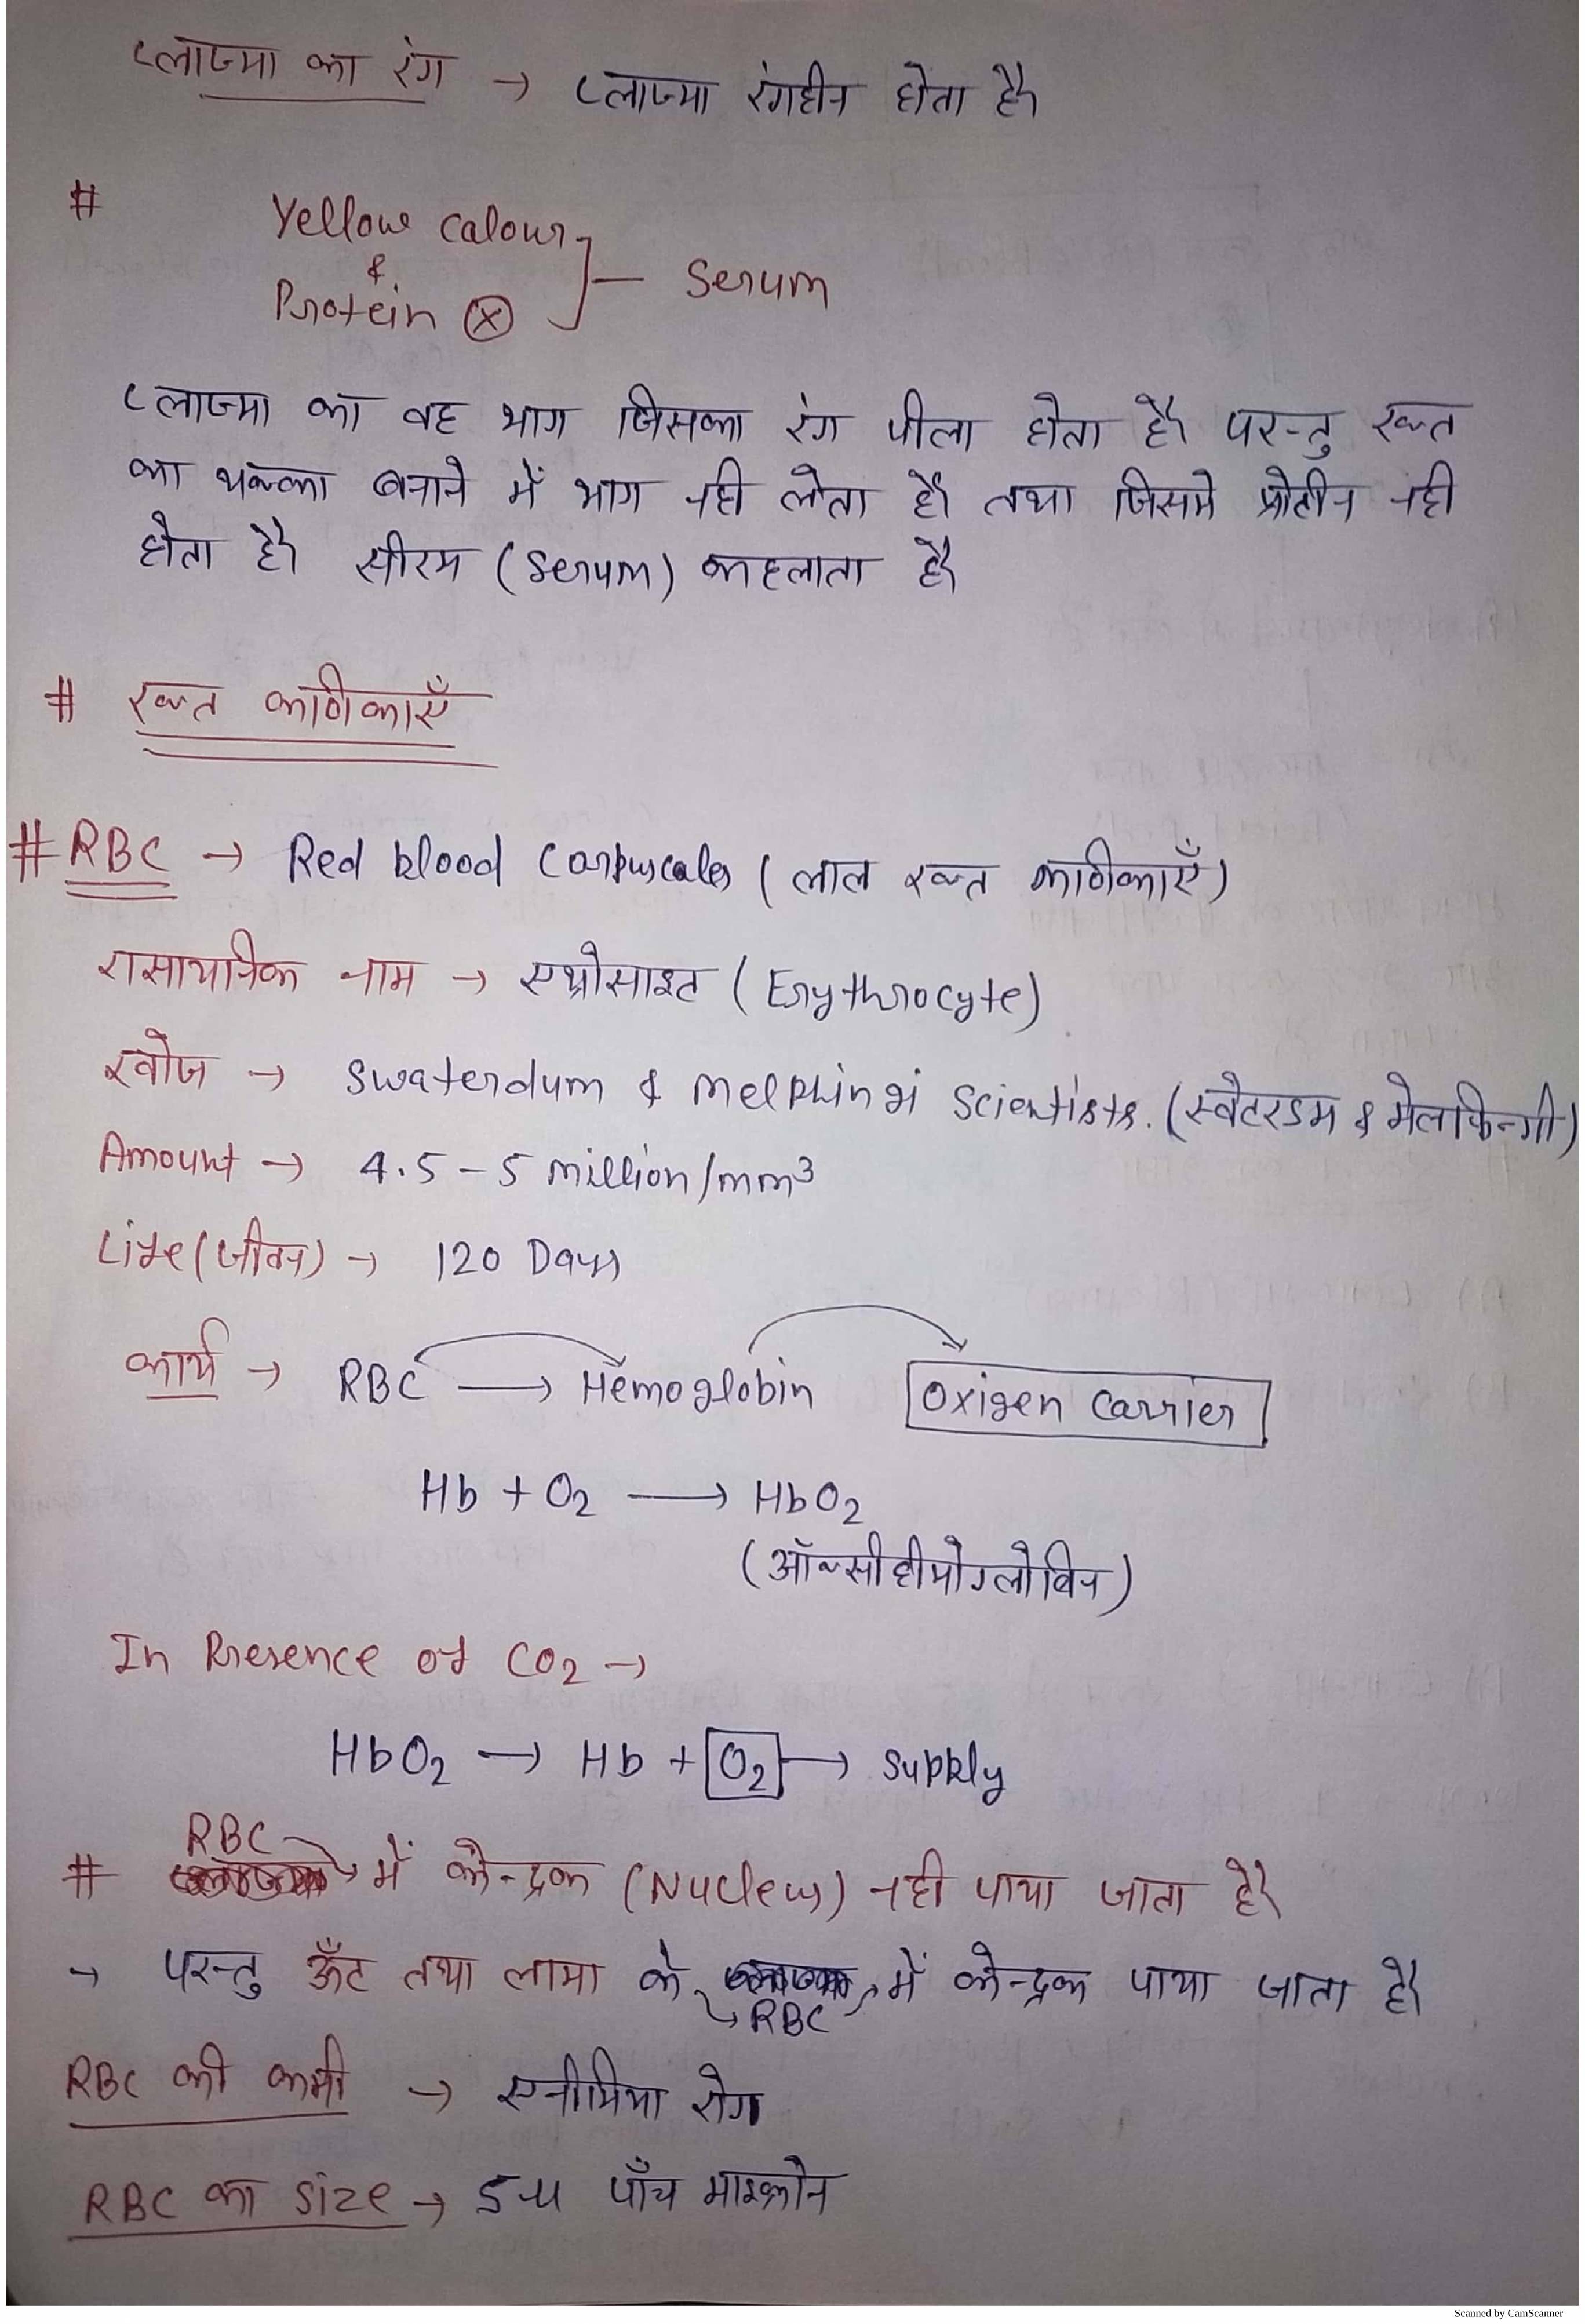 प्लाज्मा का रंग → प्लाज्मा रंगहीन होता है
# Yellow Calour
&
Protein ⊗ ]— Serum
प्लाज्मा का वह भाग जिसका रंग पीला होता है परन्तु रक्त
का थक्का बनाने में भाग नही लेता है तथा जिसमे प्रोटीन नही
होता है सीरम (Serum) कहलाता है
# रक्त कणिकाएँ
# RBC → Red blood Corpuscales (लाल रक्त कणिकाएँ)
रासायनिक नाम → एथ्रोसाइट (Erythrocyte)
खोज → Swaterdum & Melphingi Scientists. (स्वेटरडम & मेलफिन्गी)
Amount → 4.5 – 5 million/mm³
Life (जीवन) → 120 Days
कार्य → RBC → Hemoglobin Oxigen Carrier
Hb + O₂ → HbO₂
(ऑक्सीहीमोग्लोबिन)
In Presence of CO₂ →
HbO₂ → Hb + O₂ → Supply
# RBC में केन्द्रक (Nucleus) नही पाया जाता है
→ परन्तु ऊँट तथा लामा के RBC में केन्द्रक पाया जाता है
RBC की कमी → एनीमिया रोग
RBC का Size → 5-u पाँच माइक्रोन
Scanned by CamScanner